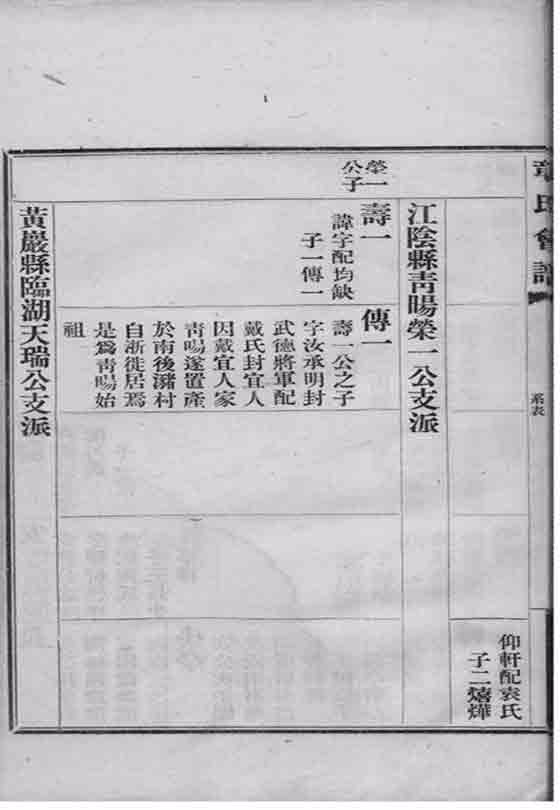 章氏會譜
系表
仰軒配袁氏
子二熺燁
江陰縣青暘榮一公支派
榮一
公子
壽一
諱字配均缺
子一傳一
傳一
壽一公之子
字汝承明封
武德將軍配
戴氏封宜人
因戴宜人家
青暘遂置產
於南後瀦村
自浙徙居焉
是爲青暘始
祖
黃巖縣臨湖天瑞公支派